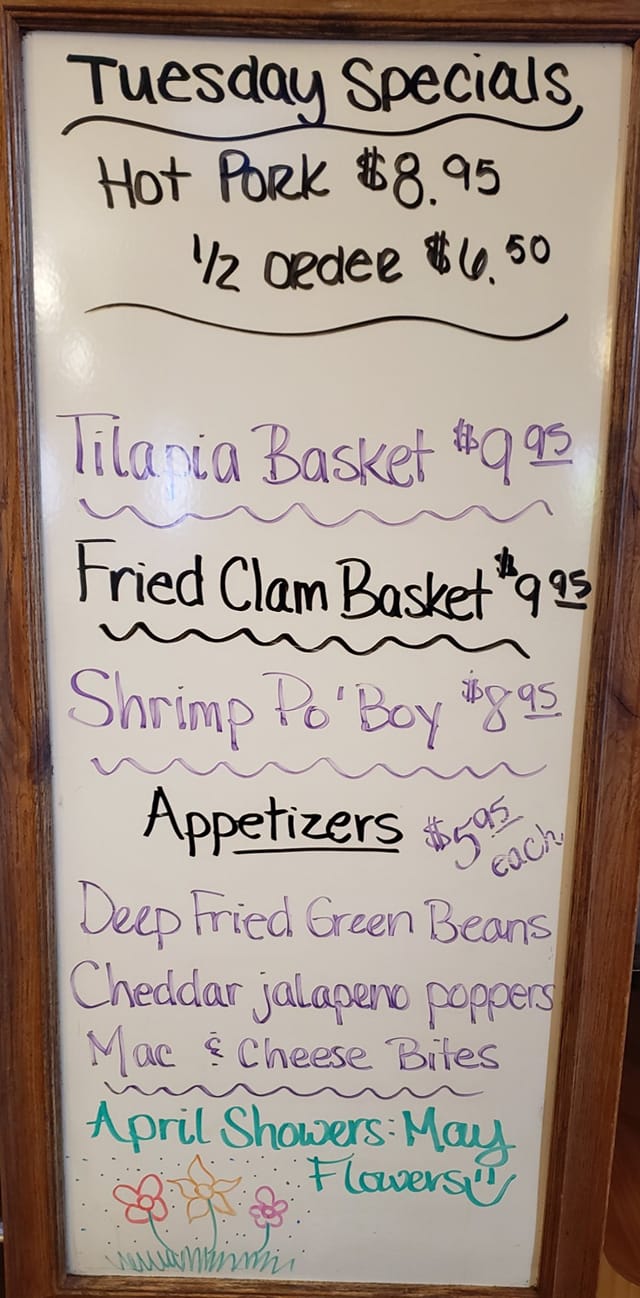 Tuesday Specials
Hot Pork $8.95
1/2 order $6.50
Tilapia Basket $9 95
Fried Clam Basket $9 95
Shrimp Po'Boy $8 95
Appetizers $5 95 each
Deep Fried Green Beans
Cheddar jalapeno poppers
Mac & Cheese Bites
April Showers: May
Flowers